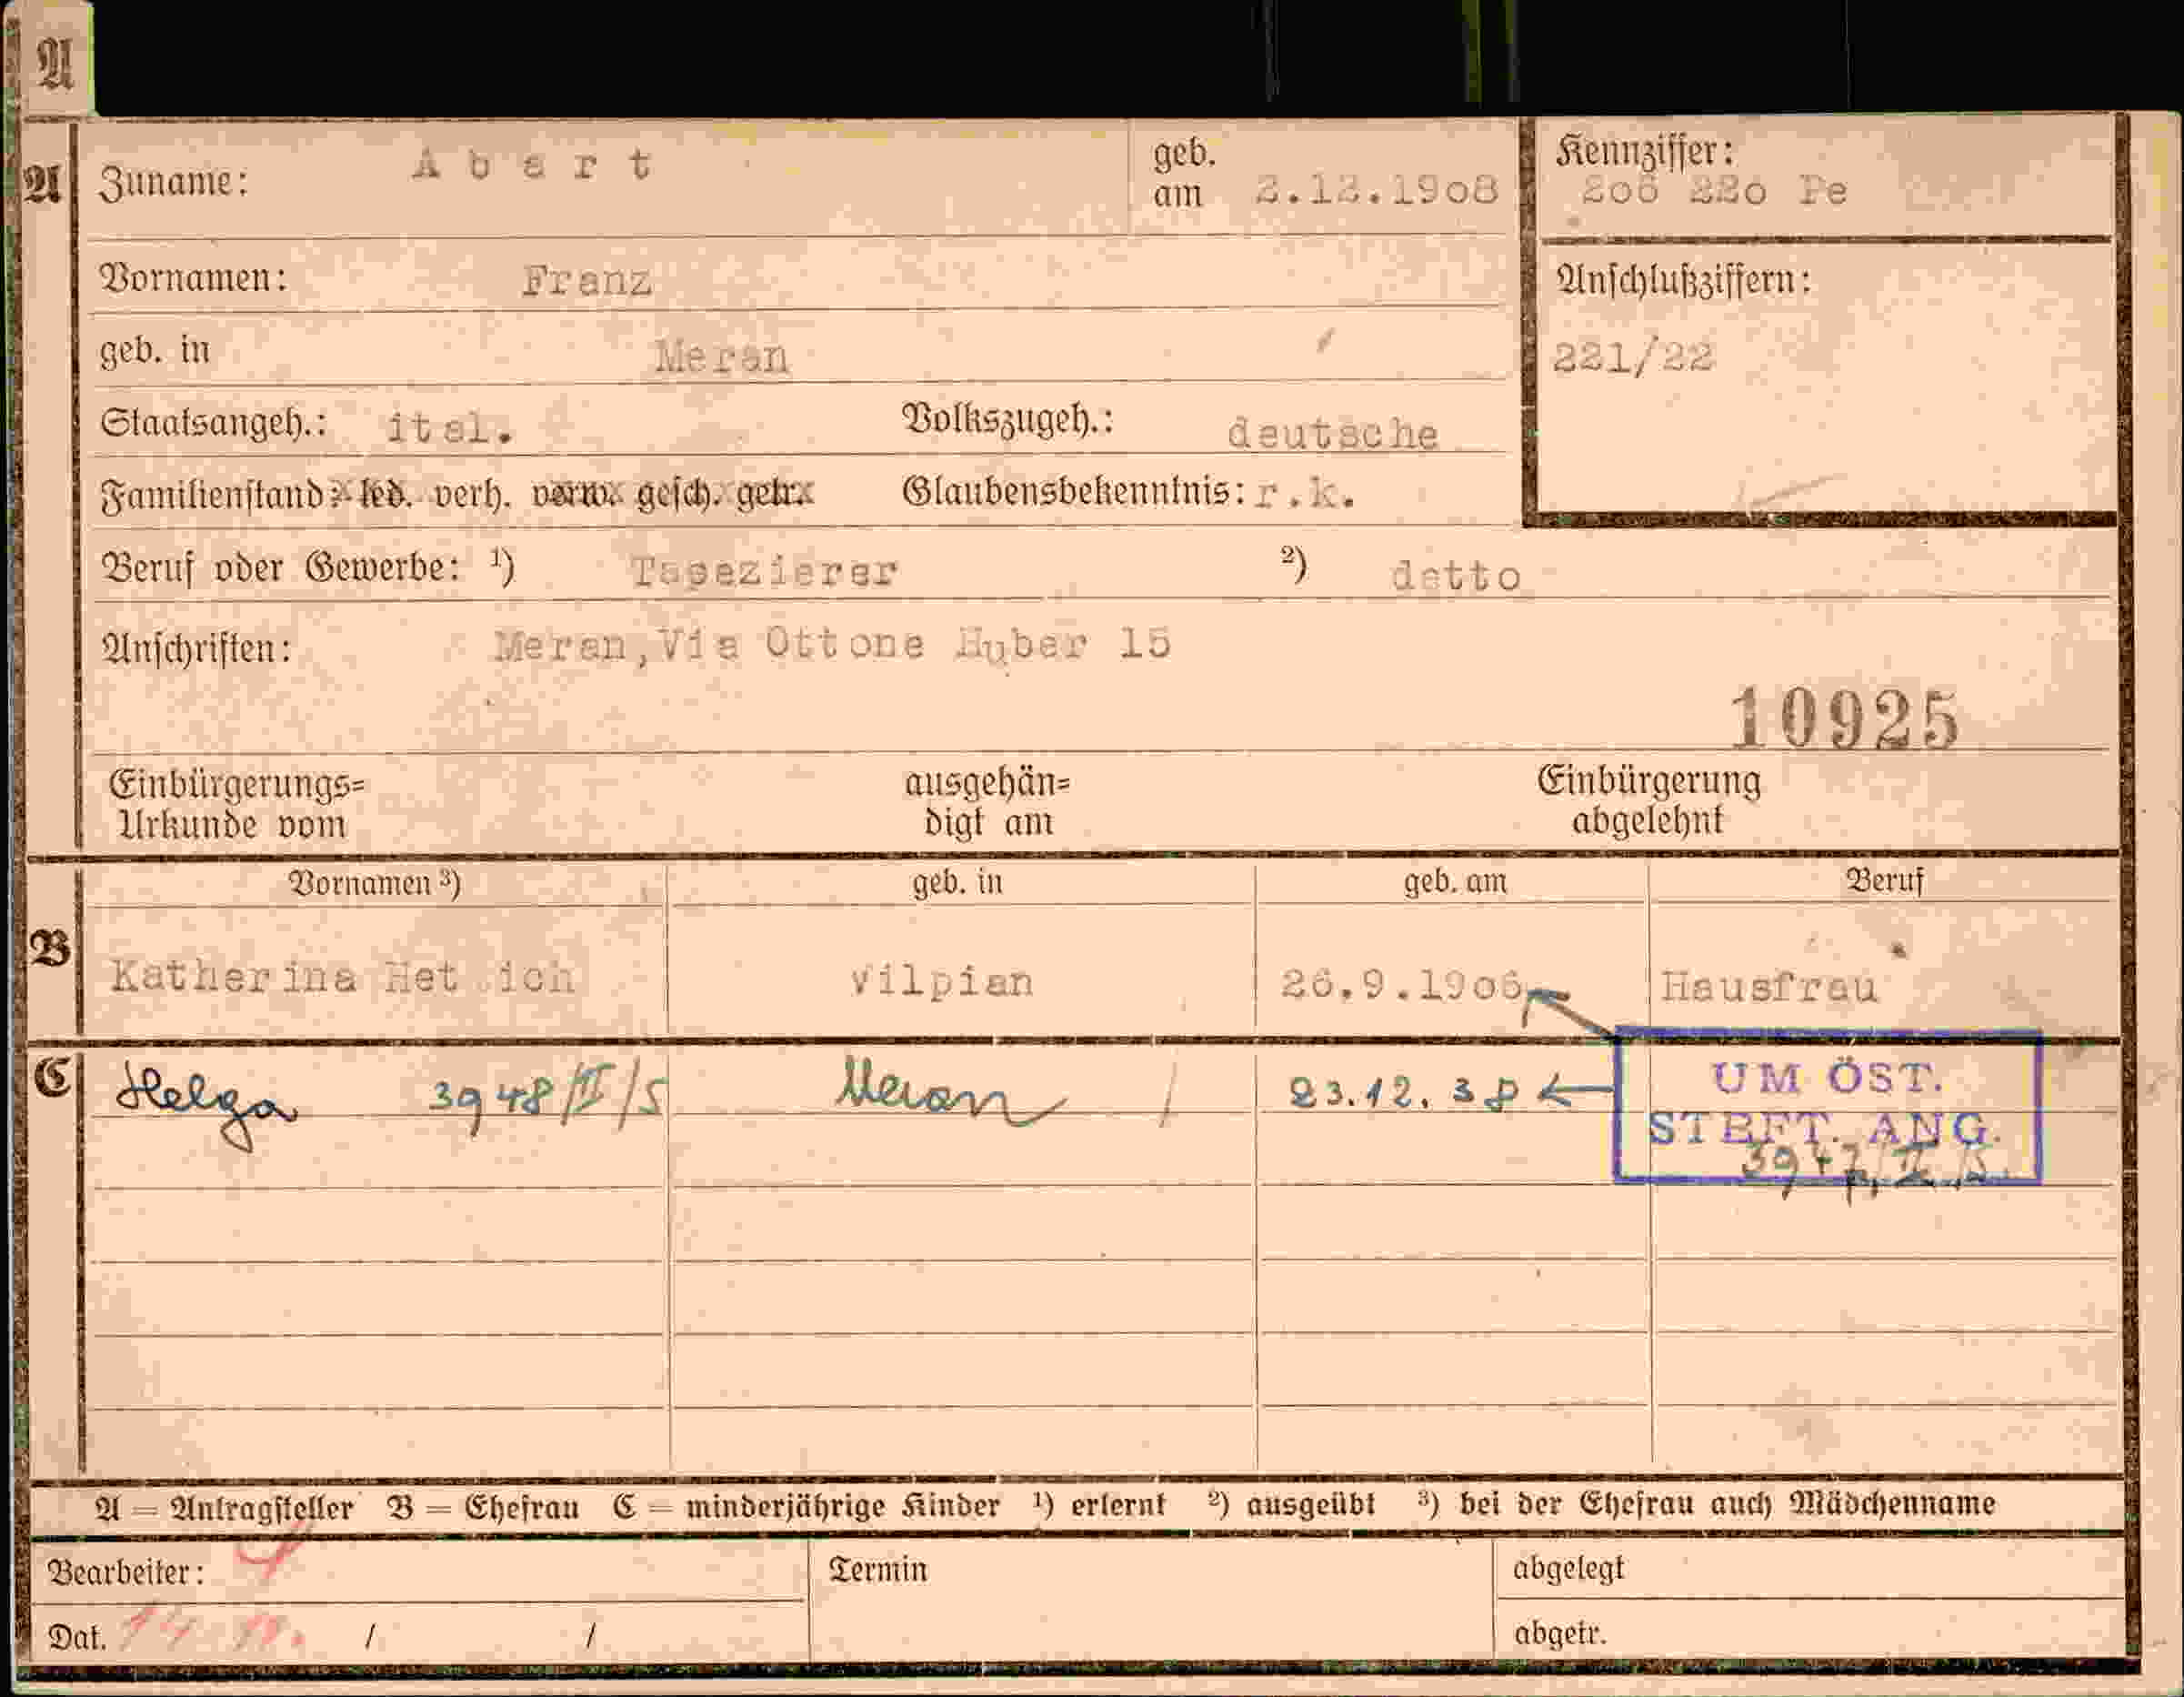 A
A
Zuname: Abart geb. am 2.12.1908 Kennziffer: 208 220 Pe
Vornamen: Franz Anschlußziffern:
geb. in Meran 221/22
Staatsangeh.: ital. Volkszugeh.: deutsche
Familienstand: led. verh. verw. gesch. getr. Glaubensbekenntnis: r.k.
Beruf oder Gewerbe: ¹) Tapezierer ²) detto
Anschriften: Meran, Via Ottone Huber 15
10925
Einbürgerungs= ausgehän= Einbürgerung
Urkunde vom digt am abgelehnt
Vornamen ³) geb. in geb. am Beruf
B Katherina Vilpian 26.9.1906 Hausfrau
C Helga 3948/II/S Meran / 23.12.38
UM ÖST.
STBFT. ANG.
3947/II/S
A = Antragsteller B = Ehefrau C = minderjährige Kinder ¹) erlernt ²) ausgeübt ³) bei der Ehefrau auch Mädchenname
Bearbeiter: Termin abgelegt
Dat. / / abgetr.